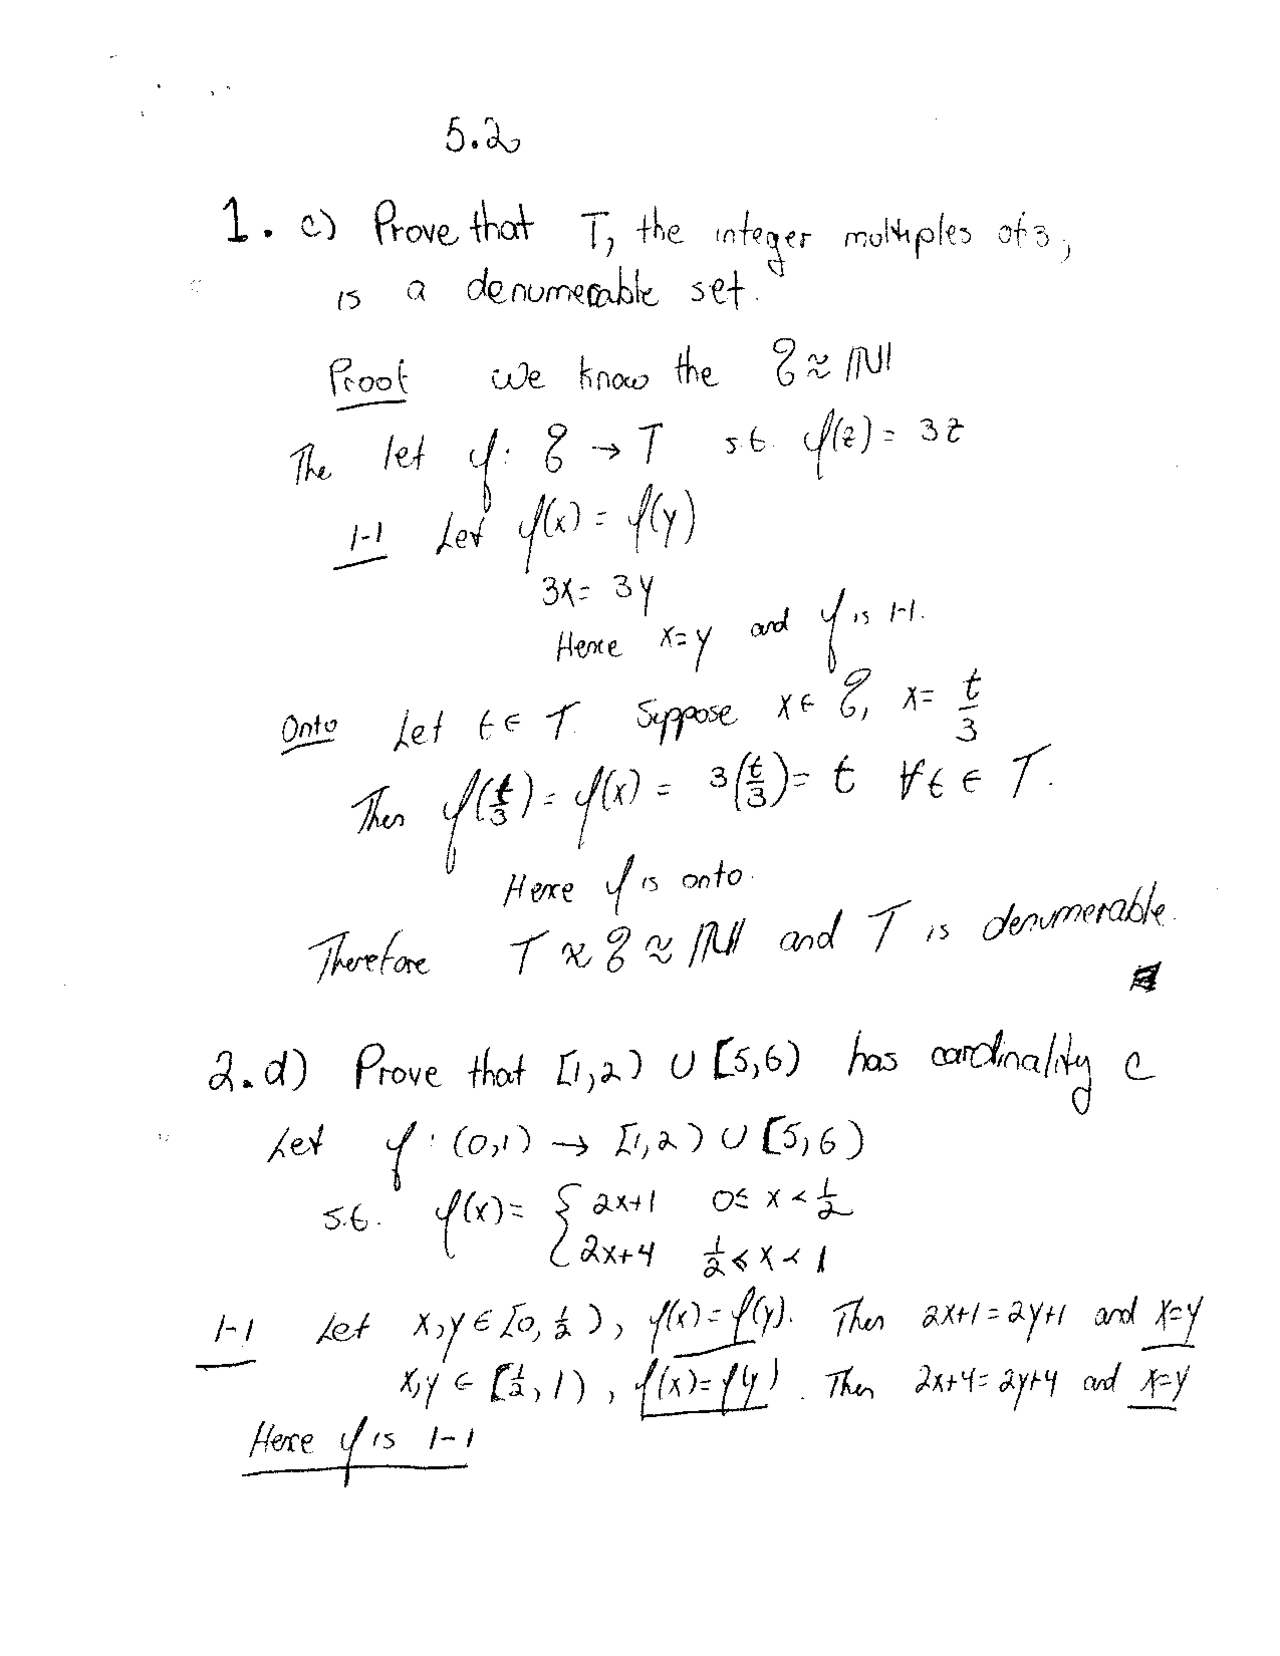 5.2
1. c) Prove that T, the integer multiples of 3,
is a denumerable set.
Proof we know the ℤ ≈ ℕ
The let f: ℤ → T s.t. f(z) = 3z
1-1 Let f(x) = f(y)
3x = 3y
Hence x=y and f is 1-1.
Onto Let t ∈ T. Suppose x ∈ ℤ, x = t/3
Then f(t/3) = f(x) = 3(t/3) = t ∀t ∈ T.
Hence f is onto.
Therefore T ≈ ℤ ≈ ℕ and T is denumerable.
2.d) Prove that [1,2) ∪ [5,6) has cardinality c
Let f: (0,1) → [1,2) ∪ [5,6)
s.t. f(x) = { 2x+1 0 ≤ x < 1/2
2x+4 1/2 ≤ x < 1
1-1 Let x,y ∈ [0, 1/2), f(x) = f(y). Then 2x+1 = 2y+1 and x=y
x,y ∈ [1/2, 1), f(x) = f(y). Then 2x+4 = 2y+4 and x=y
Hence f is 1-1